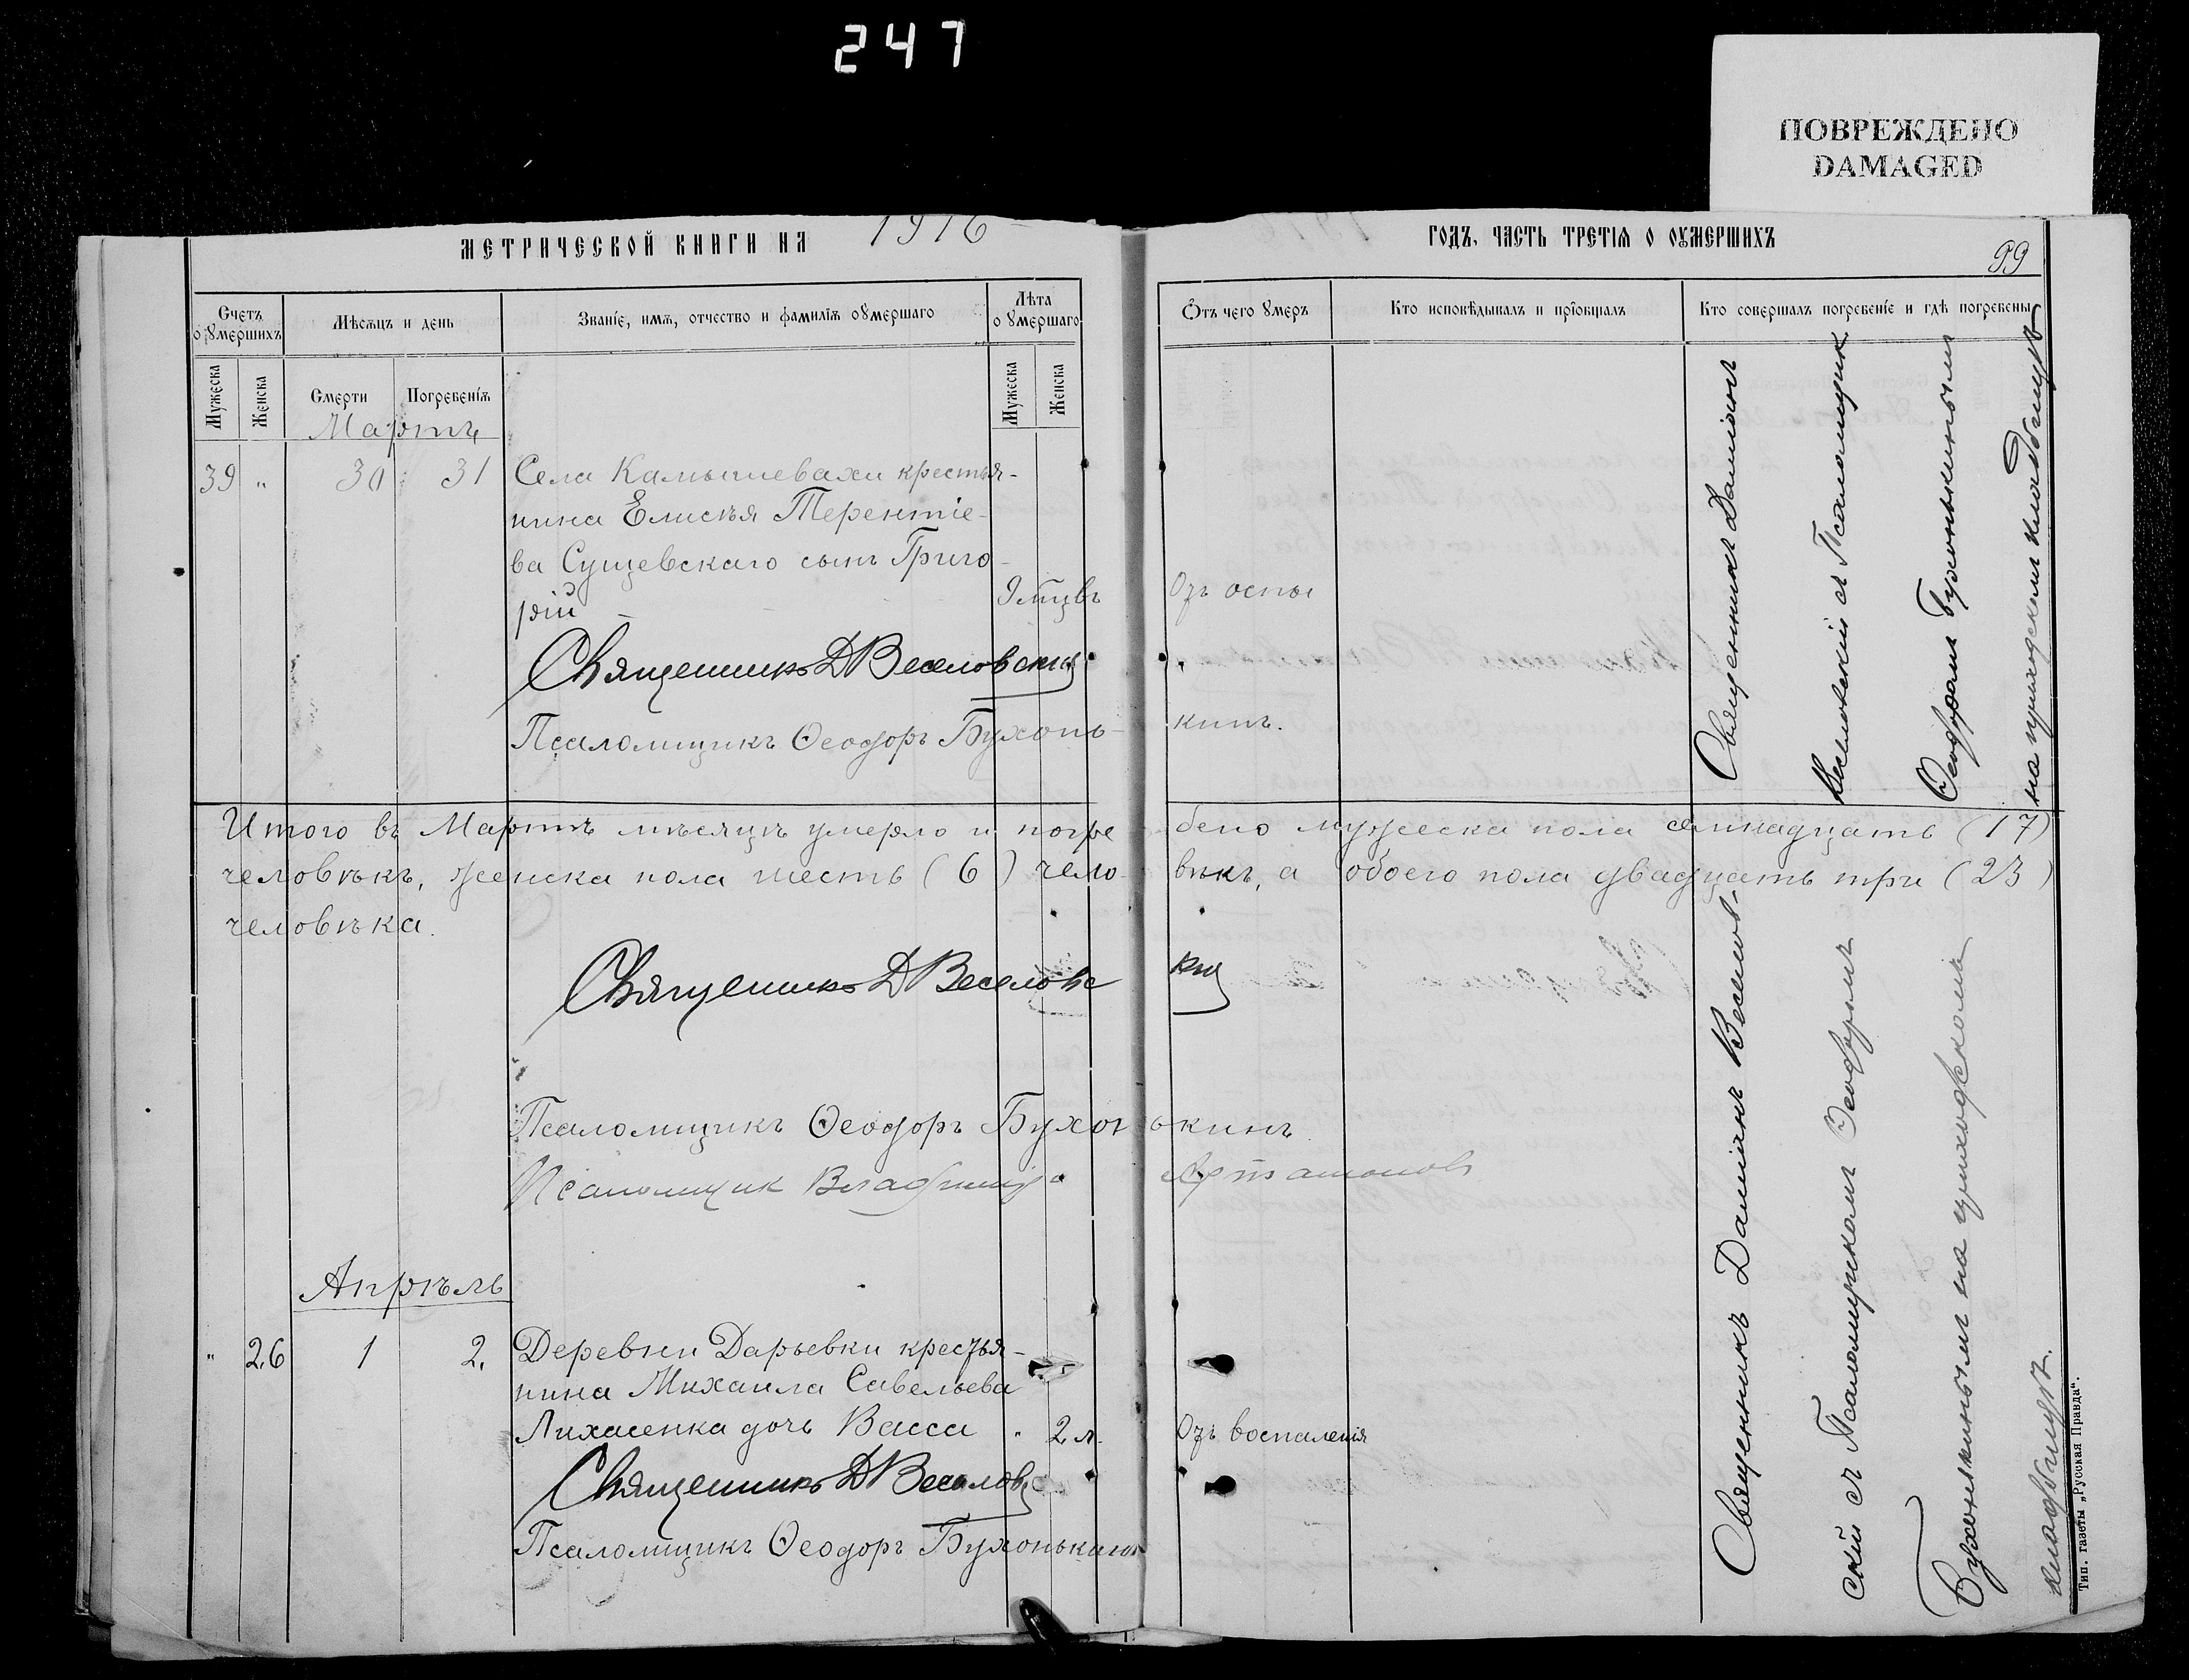 247
ПОВРЕЖДЕНО
DAMAGED
МЕТРИЧЕСКОЙ КНИГИ НА 1916
ГОДЪ, ЧАСТЬ ТРЕТІѦ О ОУМЕРШИХЪ
99
Счетъ оумершихъ
Мѣсѧцъ и день
Званіе, имѧ, отчество и фамиліѧ оумершаго
Лѣта оумершаго
Ѿтъ чего умеръ
Кто исповѣдывалъ и пріобщалъ
Кто совершалъ погребеніе и гдѣ погребены
Мужеска
Женска
Смерти
Погребеніѧ
Мужеска
Женска
Мартъ
39 " 30 31 Села Камышевахи крестья-
нина Елисѣя Терентіе-
ва Сущевскаго сынъ Григо-
рій 9 мѣцвъ Отъ оспы
Священникъ Д Веселовскій
Псаломщикъ Ѳеодоръ Бухонь-кинъ.
Священникъ Даміанъ
Веселовскій съ Псаломщик
Ѳеодоромъ Бухонькинымъ
на приходскомъ кладбищѣ
Итого въ Мартѣ мѣсяцѣ умерло и погребено мужеска пола семнадцать (17)
человѣкъ, женска пола шесть (6) чело-вѣкъ, а обоего пола двадцать три (23)
человѣка.
Священникъ Д Веселовскій
Псаломщикъ Ѳеодоръ Бухонькинъ
Псаломщик Владимір Артамонов
Апрѣль
" 26 1 2. Деревни Дарьевки крестья-
нина Михаила Савельева
Лихасенка дочь Васса " 2 л. Отъ воспаленія
Священникъ Д Веселовс
Псаломщикъ Ѳеодоръ Бухонькинъ
Священникъ Даміанъ Веселов-
скій съ Псаломщикомъ Ѳеодоромъ
Бухонькинымъ на приходскомъ
кладбищѣ.
Тип. газеты „Русская Правда“.